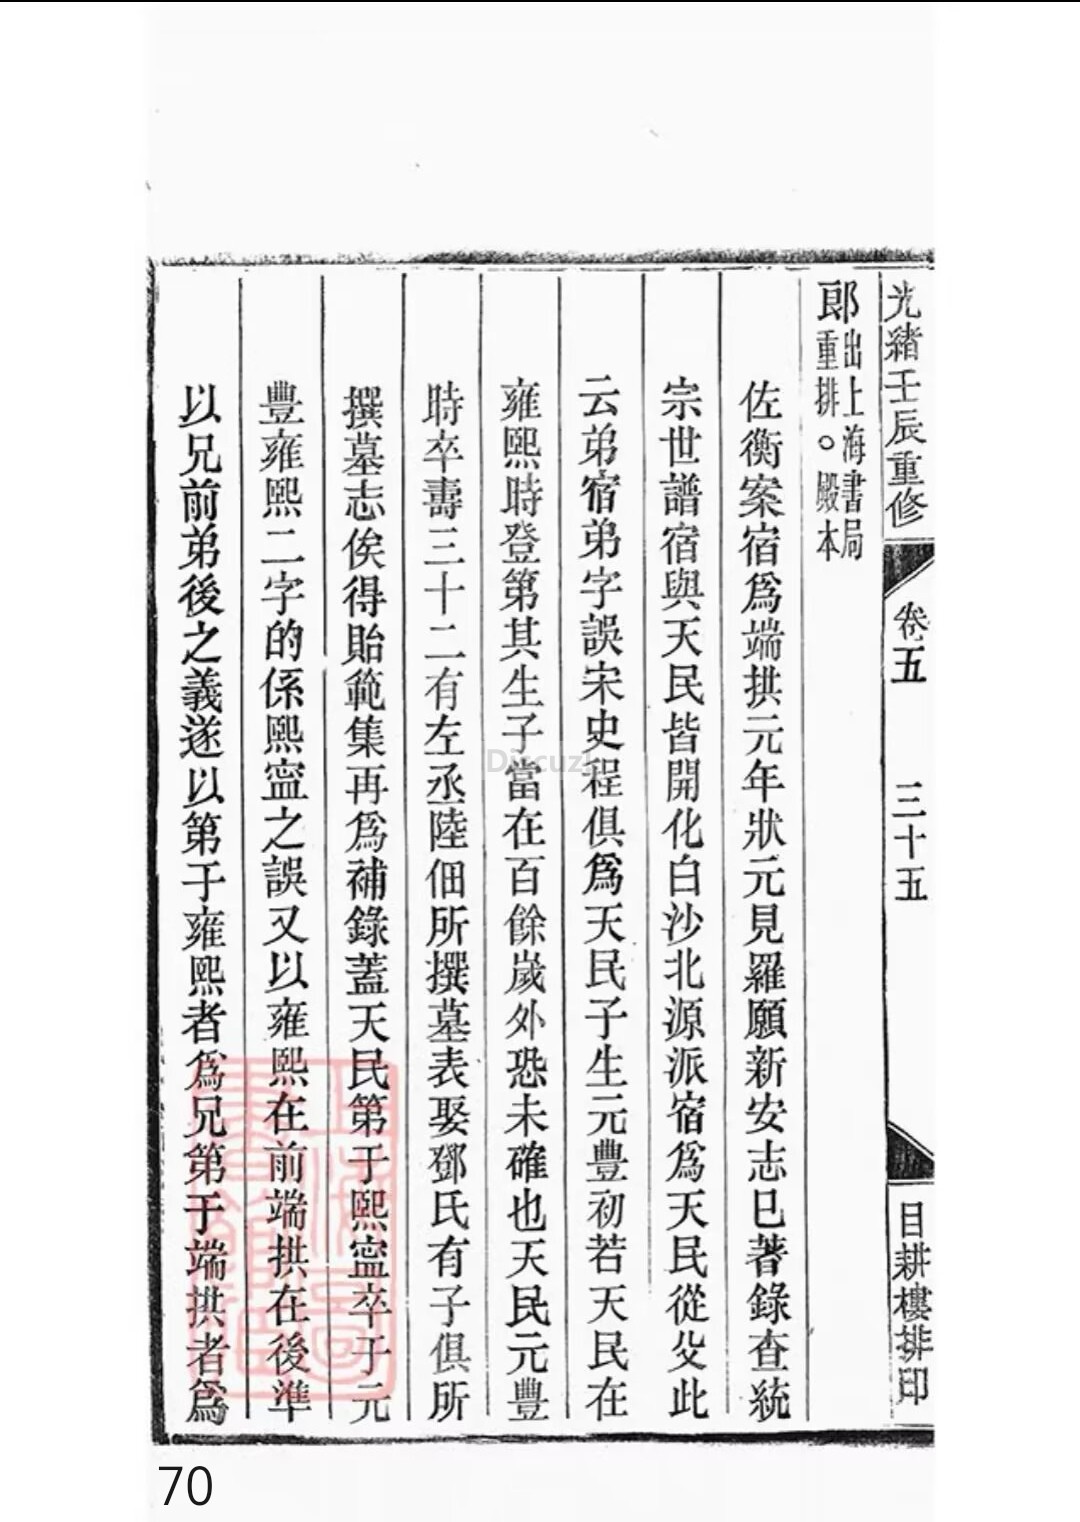 光緒壬辰重修 卷五 三十五 目耕樓排印
郎出上海書局
重排。殿本
佐衡案宿爲端拱元年狀元見羅願新安志巳著錄查統
宗世譜宿與天民皆開化白沙北源派宿爲天民從父此
云弟宿弟字誤宋史程俱爲天民子生元豐初若天民在
雍熙時登第其生子當在百餘歲外恐未確也天民元豐
時卒壽三十二有左丞陸佃所撰墓表娶鄧氏有子俱所
撰墓志俟得貽範集再爲補錄蓋天民第于熙寧卒于元
豐雍熙二字的係熙寍之誤又以雍熙在前端拱在後準
以兄前弟後之義遂以第于雍熙者爲兄第于端拱者爲
Discuz!
70